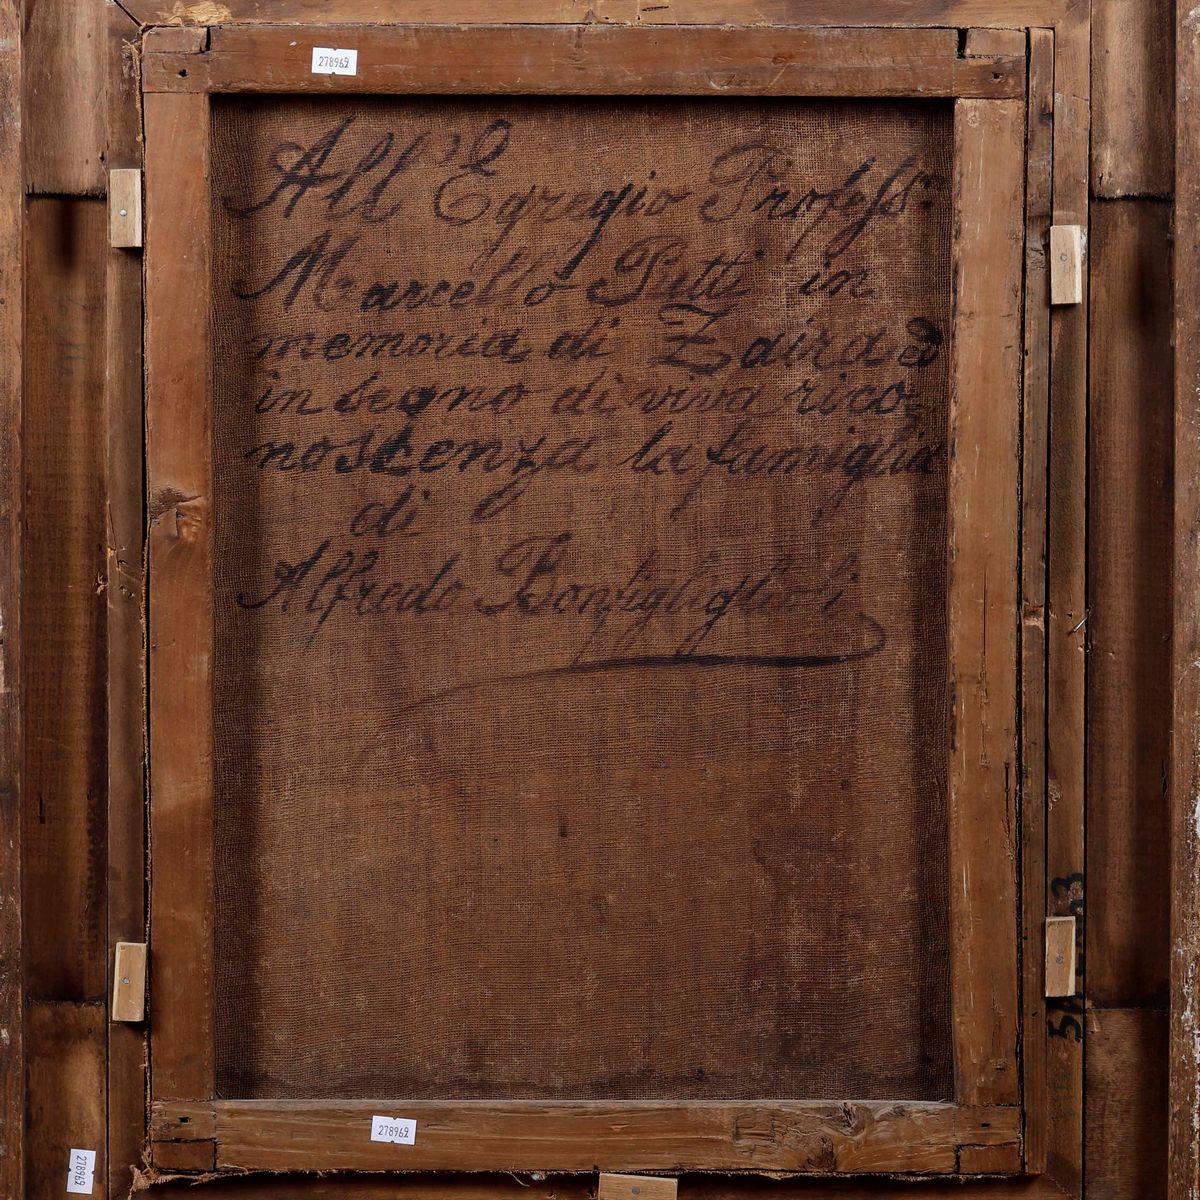 278969
All'Egregio Profess:
Marcello Putti in
memoria di Zaira ed
in segno di viva rico=
noscenza la famiglia
di
Alfredo Bonfiglioli
278969
278969